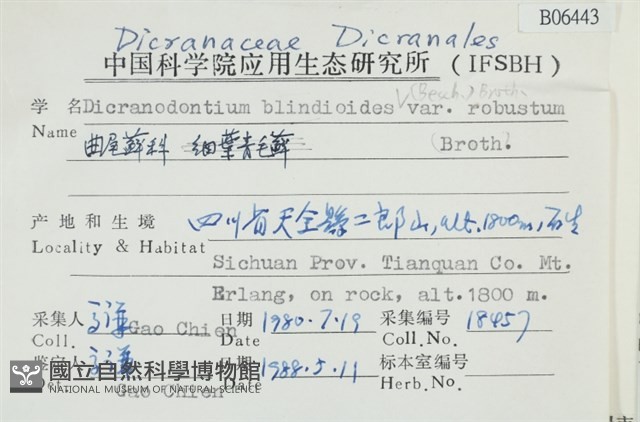 B06443
Dicranaceae Dicranales
中国科学院应用生态研究所 (IFSBH)
(Besch.) Broth.
学 名 Dicranodontium blindioides var. robustum
Name 曲尾蘚科 細葉青毛蘚 (Broth.
产地和生境 四川省天全縣二郎山, alt. 1800m, 石生
Locality & Habitat Sichuan Prov. Tianquan Co. Mt.
Erlang, on rock, alt.1800 m.
采集人 高谦 Gao Chien 日期 1980.7.19 采集编号 18457
Coll. Date Coll.No.
鉴定人 高谦 日期 1988.5.11 标本室编号
Det. Gao Chien Date Herb.No.
國立自然科學博物館
NATIONAL MUSEUM OF NATURAL SCIENCE